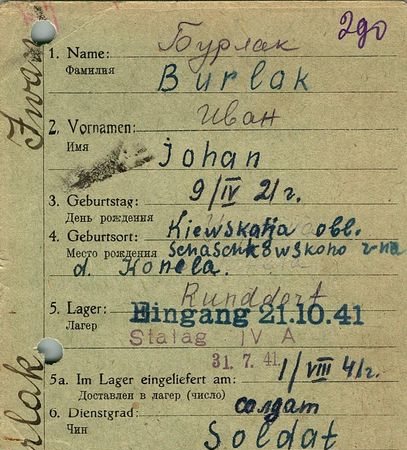 Бурлак
эдо
1. Name:
Фамилия
Burlak
Иван
2. Vornamen:
Имя
Johan
3. Geburtstag: 9/IV 21 г.
День рождения
4. Geburtsort: Kiewskaja obl.
Место рождения Schaschkowskoho r-na
d. Konela.
5. Lager: Runddorf
Лагерь
Eingang 21.10.41
Stalag IV A
31. 7. 41
5a. Im Lager eingeliefert am: 1/VIII 41 г.
Доставлен в лагерь (число)
6. Dienstgrad: солдат
Чин
Soldat
Iwan
rlak